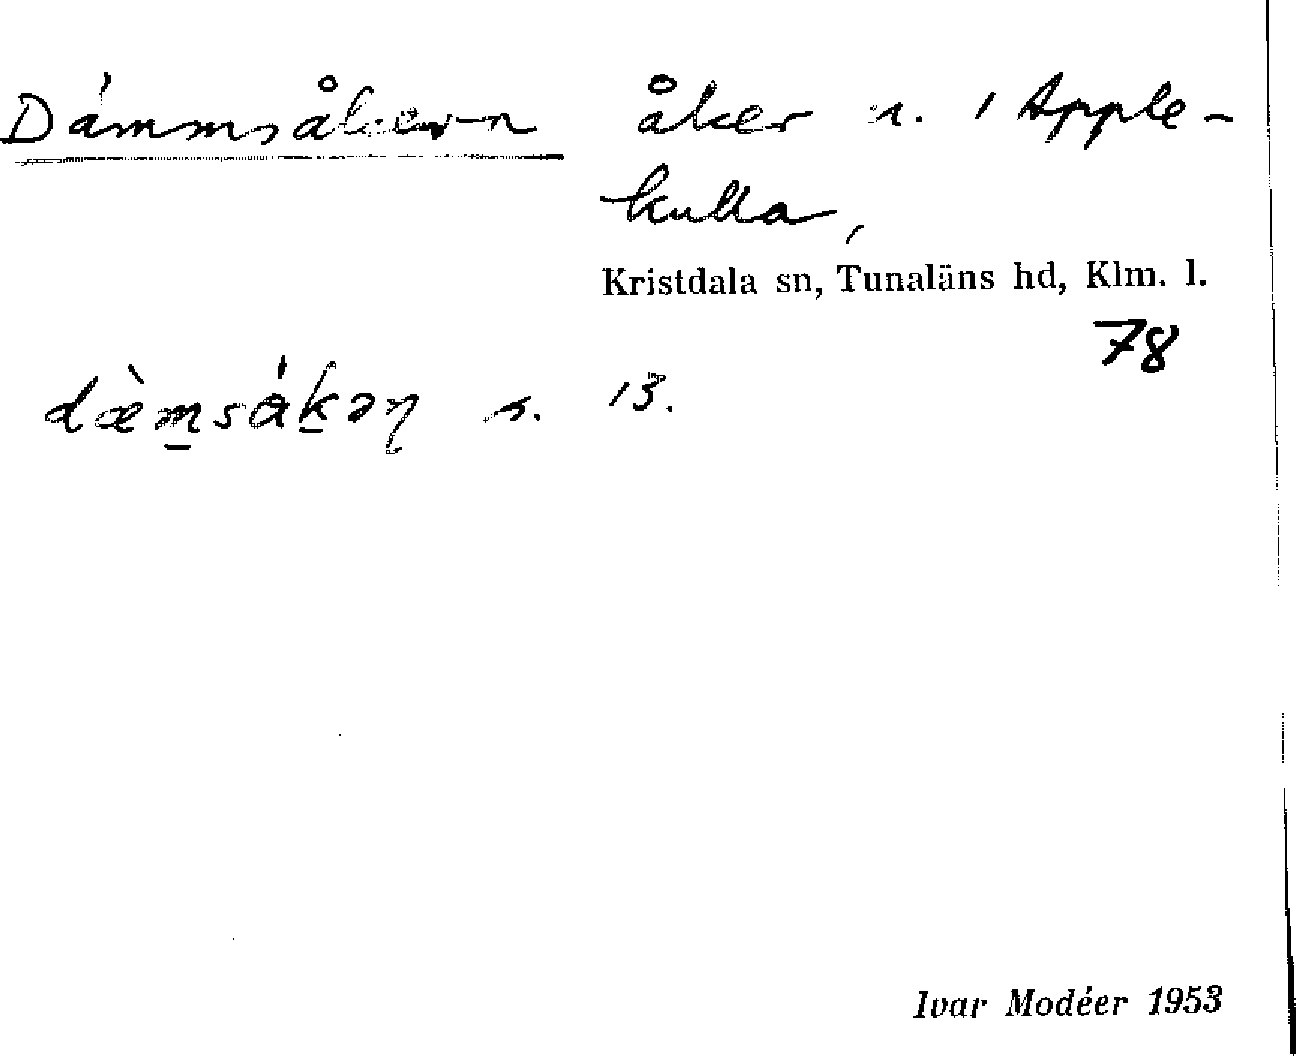 Dämmsåkern åker n. 1 Apple-
kulla,
Kristdala sn, Tunaläns hd, Klm. l.
78
dæ̀m̲sák̲əη s. 13.
Ivar Modéer 1953